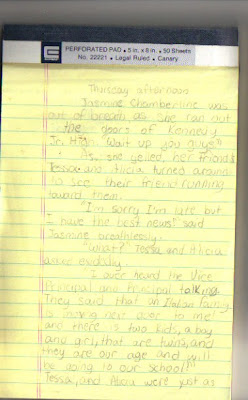 PERFORATED PAD • 5 in. x 8 in. • 50 Sheets
No. 22221 • Legal Ruled • Canary
Thursday afternoon
Jasmine Chamberline was
out of breach as she ran out
the doors of Kennedy
Jr. High. Wait up you guys"
she yelled, her friends
Tessa and Alicia turned around
to see their friend running
toward them.
"I'm sorry I'm late but
I have the best news! said
Jasmine breathlessly.
"What? Tessa and Alicia
asked
"I over heard the Vice
Principal and Principal talking
They said that an Italian family
is moving next door to me!
and there is two kids, a boy
and girl, that are twins, and
they are our age and will
be going to our school!"
Tessa, and Alicia were just as